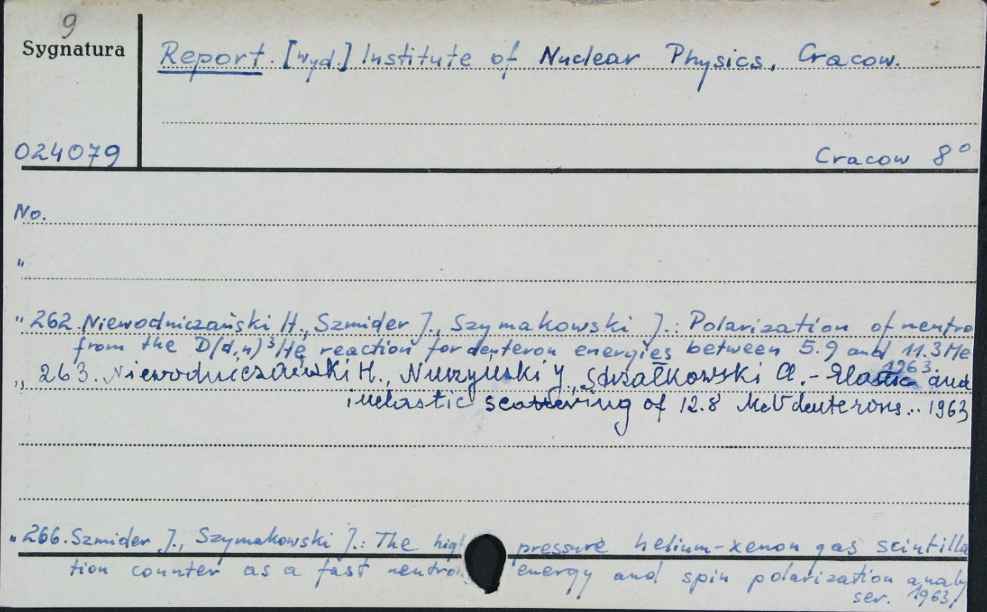 9
Sygnatura
Report. [wyd.] Institute of Nuclear Physics, Cracow.
024079
Cracow 8°
No.
"
" 262. Niewodniczański H., Szmider J., Szymakowski J.: Polarization of neutro
from the D(d,n)³He reaction for deuteron energies between 5.9 and 11.3 Me
1963.
" 263. Niewodniczański H., Nurzyński J., Strzałkowski A. - Elastic and
inelastic scattering of 12.8 MeV deuterons.. 1963
" 266. Szmider J., Szymakowski J.: The high pressure helium-xenon gas scintilla
tion counter as a fast neutro energy and spin polarization analy
ser. 1963/